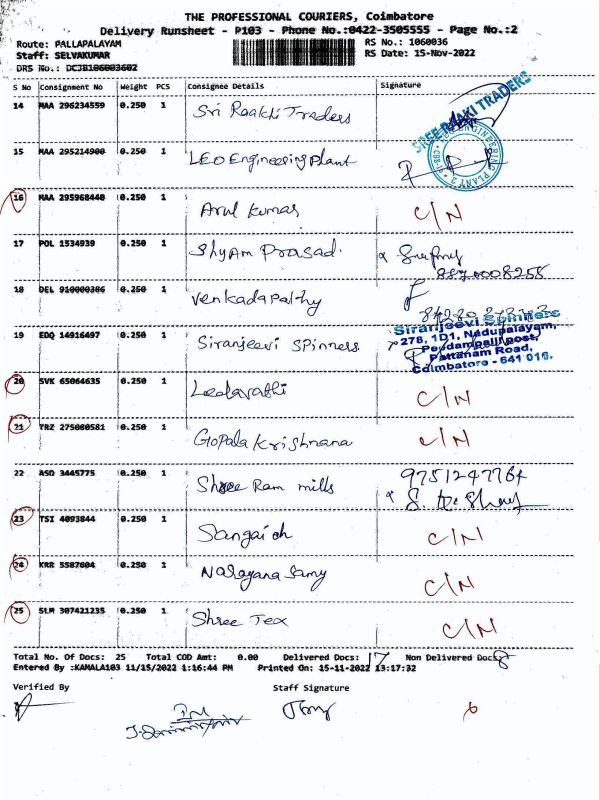 THE PROFESSIONAL COURIERS, Coimbatore
Delivery Runsheet - P103 - Phone No.:0422-3505555 - Page No.:2
Route: PALLAPALAYAM RS No.: 1060036
Staff: SELVAKUMAR RS Date: 15-Nov-2022
DRS No.: DCJB106003602
S No Consignment No Weight PCS Consignee Details Signature
14 MAA 296234559 0.250 1 Sri Raakki Traders SREE RAAKI TRADERS
15 MAA 295214900 0.250 1 LEO Engineering Plant
16 MAA 295968440 0.250 1 Arul Kumar C/N
17 POL 1534939 0.250 1 Shyam Prasad. 8870008255
18 DEL 910000386 0.250 1 Venkadapathy
19 EDQ 14916497 0.250 1 Siranjeevi Spinners Siranjeevi Spinners
278, 1D1, Nadupalayam,
Peedampalli post,
Pattanam Road,
Coimbatore - 641 016.
20 SVK 65064635 0.250 1 Leelavathi C/N
21 TRZ 275080581 0.250 1 Gopala Krishnana C/N
22 ASD 3445775 0.250 1 Shree Ram mills 9751247764
23 TSI 4093844 0.250 1 C/N
24 KRR 5587604 0.250 1 Narayana Samy C/N
25 SLM 307421235 0.250 1 Shree Tex C/N
Total No. Of Docs: 25 Total COD Amt: 0.00 Delivered Docs: 17 Non Delivered Docs: 8
Entered By :KAMALA103 11/15/2022 1:16:44 PM Printed On: 15-11-2022 13:17:32
Verified By Staff Signature